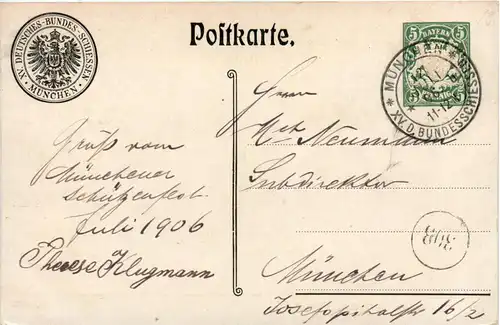 XV. DEUTSCHES-BUNDES-SCHIESSEN.
MÜNCHEN
Postkarte.
5 BAYERN 5
MÜNCHEN
11-12
XV. D. BUNDESSCHI
Gruß vom
Münchener
Schützenfest
Juli 1906
Therese Klugmann
Herrn
Neumann
Subdirektor
München
Josefspitalstr 16/2